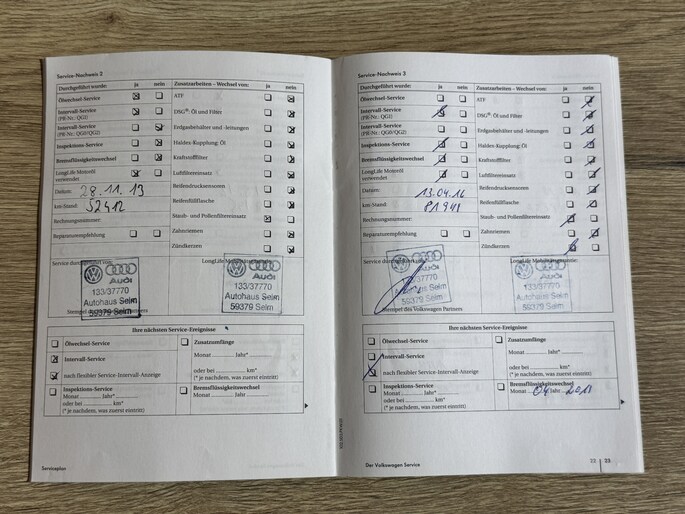 Service-Nachweis 2
Durchgeführt wurde: ja nein
Ölwechsel-Service
Intervall-Service
(PR-Nr.: QG1)
Intervall-Service
(PR-Nr.: QG0/QG2)
Inspektions-Service
Bremsflüssigkeitswechsel
LongLife Motoröl
verwendet
Datum: 28.11.13
km-Stand: 52412
Rechnungsnummer:
Reparaturempfehlung
Zusatzarbeiten – Wechsel von: ja nein
ATF
DSG®: Öl und Filter
Erdgasbehälter und -leitungen
Haldex-Kupplung: Öl
Kraftstofffilter
Luftfiltereinsatz
Reifendrucksensoren
Reifenfüllflasche
Staub- und Pollenfiltereinsatz
Zahnriemen
Zündkerzen
Service durchgeführt von:
Audi
133/37770
Autohaus Selm
59379 Selm
Stempel des Volkswagen Partners
LongLife Mobilitätsgarantie
Audi
133/37770
Autohaus Selm
59379 Selm
Ihre nächsten Service-Ereignisse
Ölwechsel-Service
Intervall-Service
nach flexibler Service-Intervall-Anzeige
Inspektions-Service
Monat ........ Jahr*
oder bei ........ km*
(* je nachdem, was zuerst eintritt)
Zusatzumfänge
Monat ........ Jahr*
oder bei ........ km*
(* je nachdem, was zuerst eintritt)
Bremsflüssigkeitswechsel
Monat ........ Jahr
Serviceplan
Service-Nachweis 3
Durchgeführt wurde: ja nein
Ölwechsel-Service
Intervall-Service
(PR-Nr.: QG1)
Intervall-Service
(PR-Nr.: QG0/QG2)
Inspektions-Service
Bremsflüssigkeitswechsel
LongLife Motoröl
verwendet
Datum: 13.04.16
km-Stand: 81941
Rechnungsnummer:
Reparaturempfehlung
Zusatzarbeiten – Wechsel von: ja nein
ATF
DSG®: Öl und Filter
Erdgasbehälter und -leitungen
Haldex-Kupplung: Öl
Kraftstofffilter
Luftfiltereinsatz
Reifendrucksensoren
Reifenfüllflasche
Staub- und Pollenfiltereinsatz
Zahnriemen
Zündkerzen
Service durchgeführt von:
Audi
133/37770
Autohaus Selm
59379 Selm
Stempel des Volkswagen Partners
Audi
133/37770
Autohaus Selm
59379 Selm
Ihre nächsten Service-Ereignisse
Ölwechsel-Service
Intervall-Service
nach flexibler Service-Intervall-Anzeige
Inspektions-Service
Monat ........ Jahr*
oder bei ........ km*
(* je nachdem, was zuerst eintritt)
Zusatzumfänge
Monat ........ Jahr*
oder bei ........ km*
(* je nachdem, was zuerst eintritt)
Bremsflüssigkeitswechsel
Monat 04 Jahr
Der Volkswagen Service
22 | 23